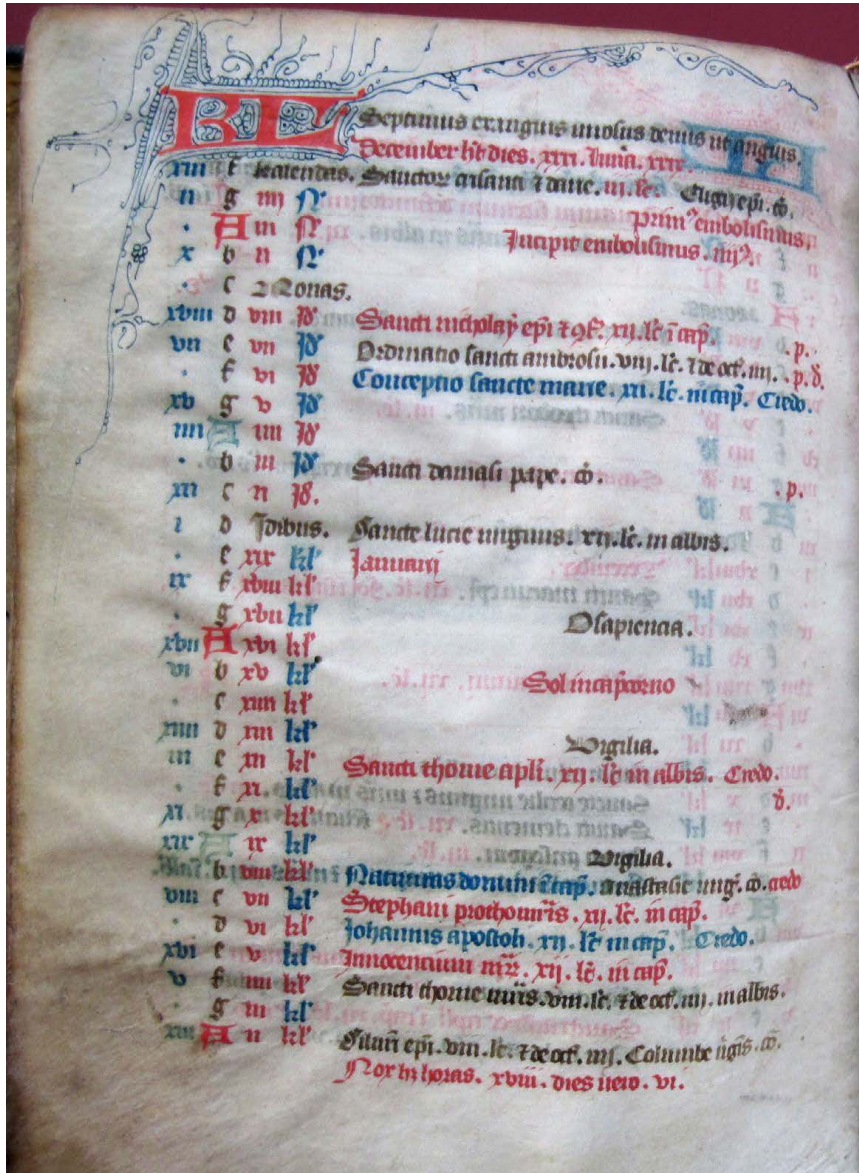 KL Septimus exanguis uirosus denus ut anguis.
December ht dies. xxxi. luna. xxx.
xiii f kalendas. Sanctor grisanti ⁊ darie. iii. lc̄. Eligij epi. cō.
ii g iiii N' prim⁹ embolismus
. A iii N' Incipit embolismus. iij⁹.
x b ii N'
. c Nonas.
xviii d viii Id' Sancti nicholay epi ⁊ ꝯf. xii. lc̄ ī cap̄. . p.
vii e vii Id' Ordinatio sancti ambrosii. viij. lc̄. ⁊ de oct. iiij. . p. d.
. f vi Id' Conceptio sancte marie. xii. lc̄. in cap̄. Credo.
xv g v Id'
iiii A iiii Id'
. b iii Id' Sancti damasi pape. cō.
xii c ii Id'. . p.
i d Idibus. Sancte lucie uirginis. xij. lc̄. in albis.
. e xix kl' Januarij
ix f xviii kl'
. g xvii kl' O sapiencia.
xvii A xvi kl'
vi b xv kl' Sol in capicorno
. c xiiii kl'
xiiii d xiii kl' Vigilia.
iii e xii kl' Sancti thome apli. xij. lc̄ in albis. Credo.
. f xi. kl' d.
xi g x kl'
xix A ix kl' Vigilia.
. b viii kl' Natiuitas domini ī cap̄. anastasie uirg. cō. credo
viii c vii kl' Stephani prothom̄ris. xij. lc̄. in cap̄.
. d vi kl' Johannis apostoli. xij. lc̄ in cap̄. Credo.
xvi e v kl' Innocencium mr̄. xij. lc̄. in cap̄.
v f iiii kl' Sancti thome mr̄is. viii. lc̄. ⁊ de oct. iiij. in albis.
. g iii kl'
xiii A ii kl' Siluri epi. viii. lc̄. ⁊ de oct. iiij. Columbe uĝis. cō.
Nox hȝ horas. xviii. dies uero. vi.